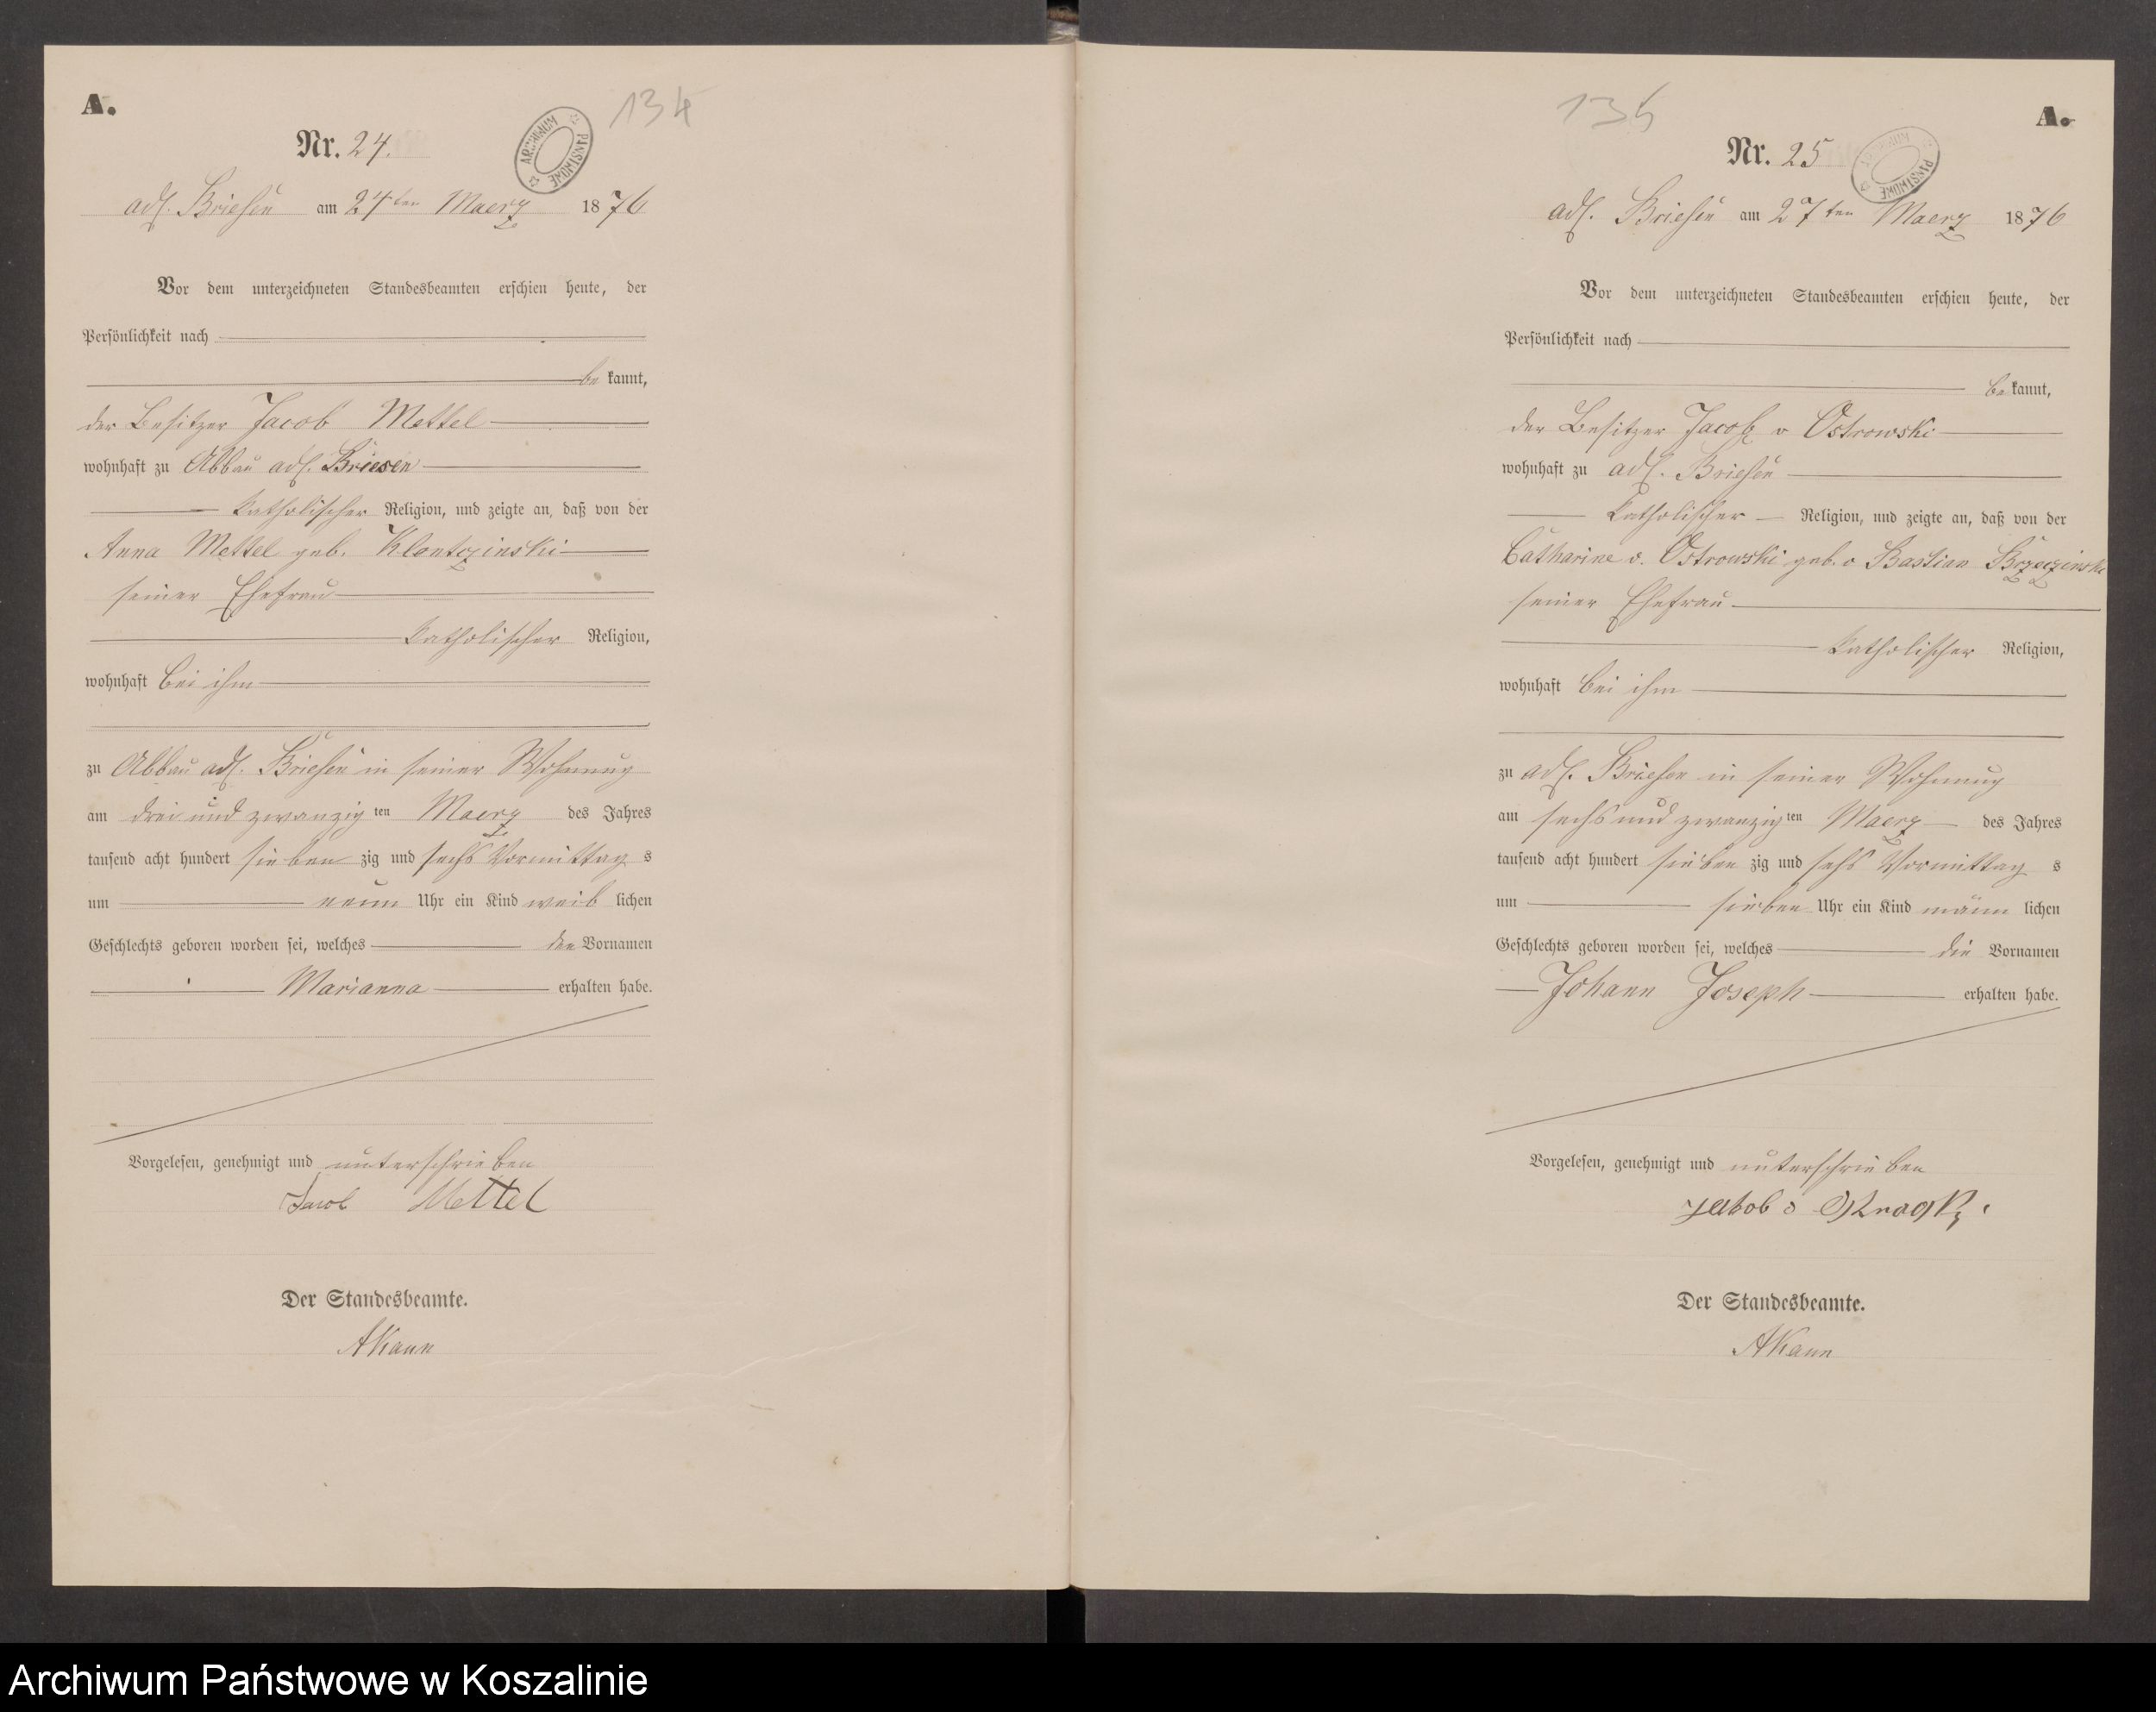 A.
134
Nr. 24.
ARCHIWUM PAŃSTWOWE
adl. Briesen am 24ten Maerz 1876
Vor dem unterzeichneten Standesbeamten erschien heute, der
Persönlichkeit nach
bekannt,
der Besitzer Jacob Mettel
wohnhaft zu Abbau adl. Briesen
katholischer Religion, und zeigte an, daß von der
Anna Mettel geb. Klontzinski
seiner Ehefrau
katholischer Religion,
wohnhaft bei ihm
zu Abbau adl. Briesen in seiner Wohnung
am drei und zwanzigten Maerz des Jahres
tausend acht hundert siebenzig und sechs Vormittags
um neun Uhr ein Kind weiblichen
Geschlechts geboren worden sei, welches den Vornamen
Marianna erhalten habe.
Vorgelesen, genehmigt und unterschrieben
Jacob Mettel
Der Standesbeamte.
AKann
A.
135
Nr. 25
ARCHIWUM PAŃSTWOWE
adl. Briesen am 27ten Maerz 1876
Vor dem unterzeichneten Standesbeamten erschien heute, der
Persönlichkeit nach
bekannt,
der Besitzer Jacob v Ostrowski
wohnhaft zu adl. Briesen
katholischer Religion, und zeigte an, daß von der
Catharine v. Ostrowski geb. v Bastian Brzezinski
seiner Ehefrau
katholischer Religion,
wohnhaft bei ihm
zu adl. Briesen in seiner Wohnung
am sechs und zwanzigten Maerz des Jahres
tausend acht hundert siebenzig und sechs Vormittags
um sieben Uhr ein Kind männlichen
Geschlechts geboren worden sei, welches die Vornamen
Johann Joseph erhalten habe.
Vorgelesen, genehmigt und unterschrieben
Der Standesbeamte.
AKann
Archiwum Państwowe w Koszalinie